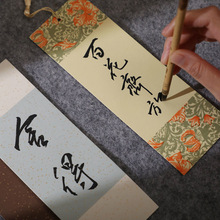 百花齊放
舍得